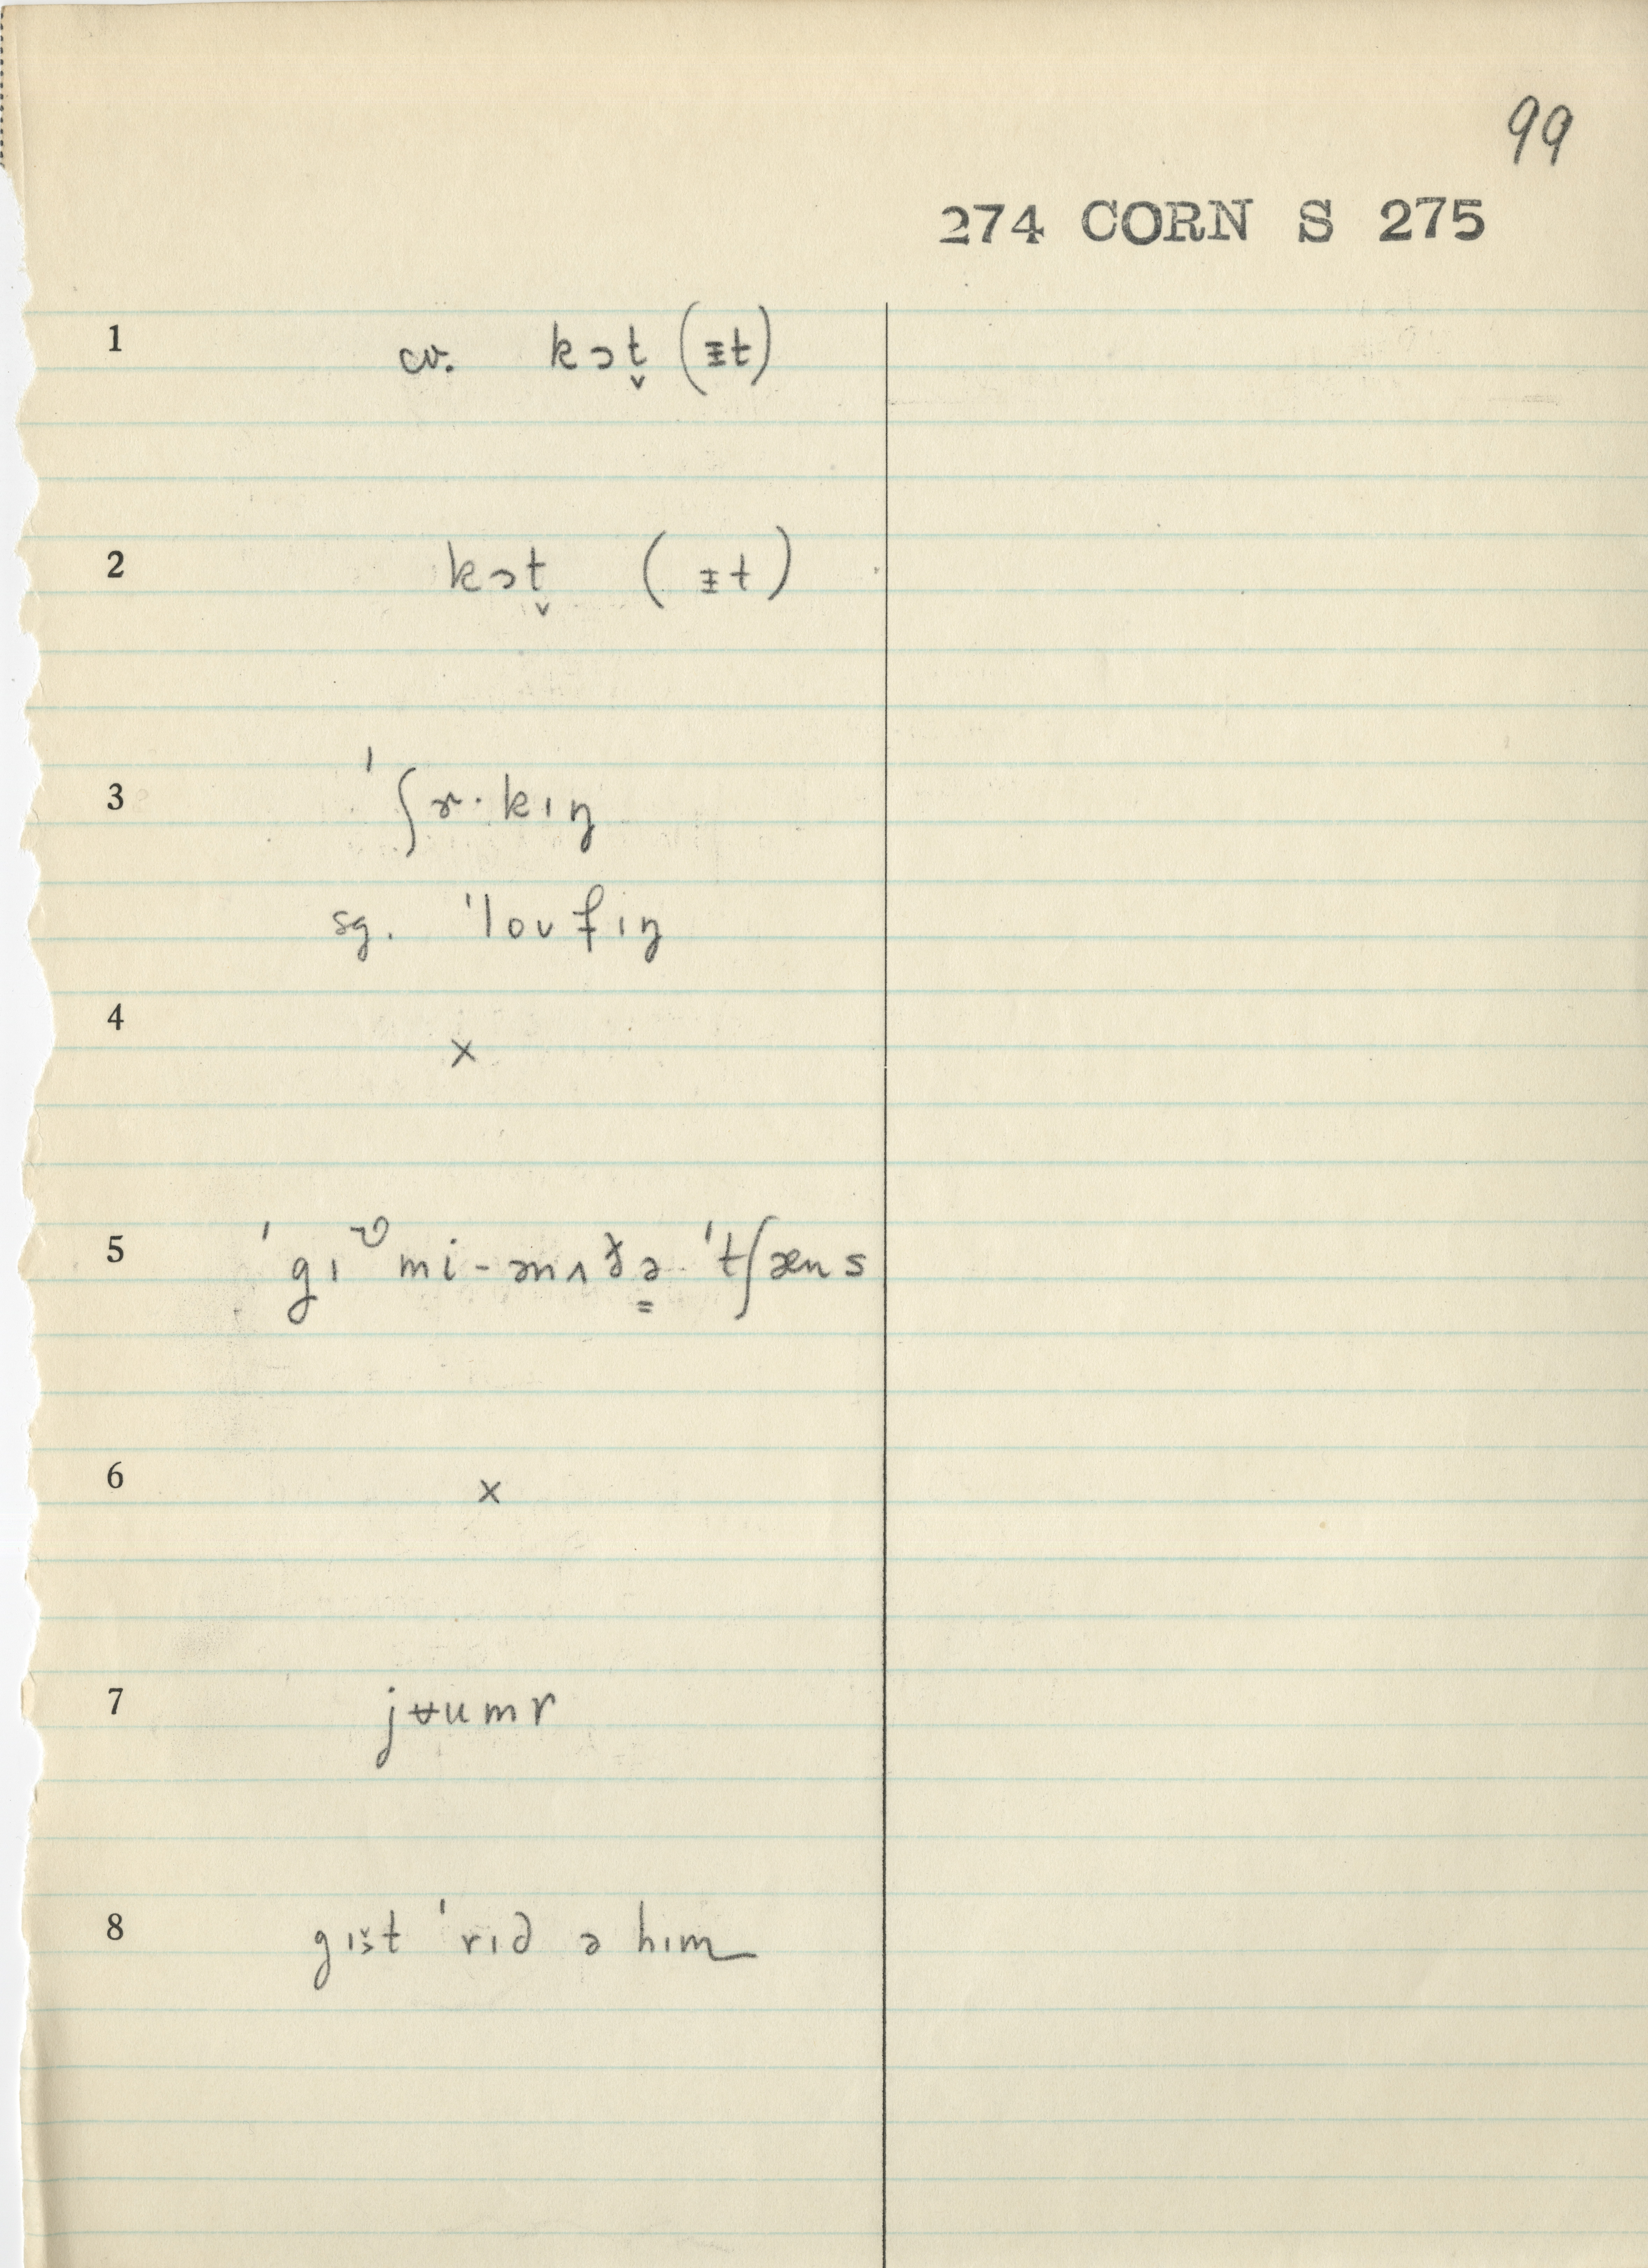 99
274 CORN S 275
1 cv. kɔt̬ (ᵻt)
2 kɔt̬ (ᵻt)
3 ˈʃɝ·kɪŋ
sg. ˈloʊfɪŋ
4 ×
5 ˈgɪᵛ mi-ənʌðə ˈtʃæns
6 ×
7 jʉumr
8 gɪs̬t ˈrɪd ə hɪm